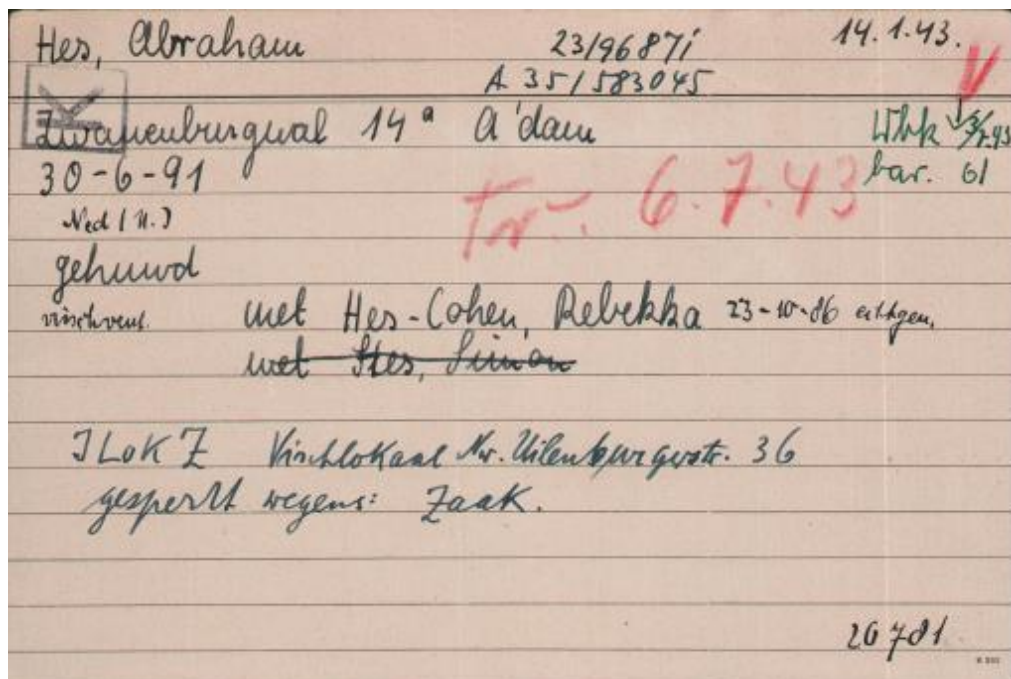 Hes, Abraham 23/96871 14.1.43.
A 35/583045 V
K
Zwanenburgwal 14a A'dam Wbk
30-6-91 bar. 61
Tr. 6.7.43
Ned (N.)
gehuwd
vischvent. met Hes-Cohen, Rebekka 23-10-86 echtgen.
met Hes, Simon
JLokZ Vischlokaal Nw. Uilenburgerstr. 36
gesperrt wegens: Zaak.
26781